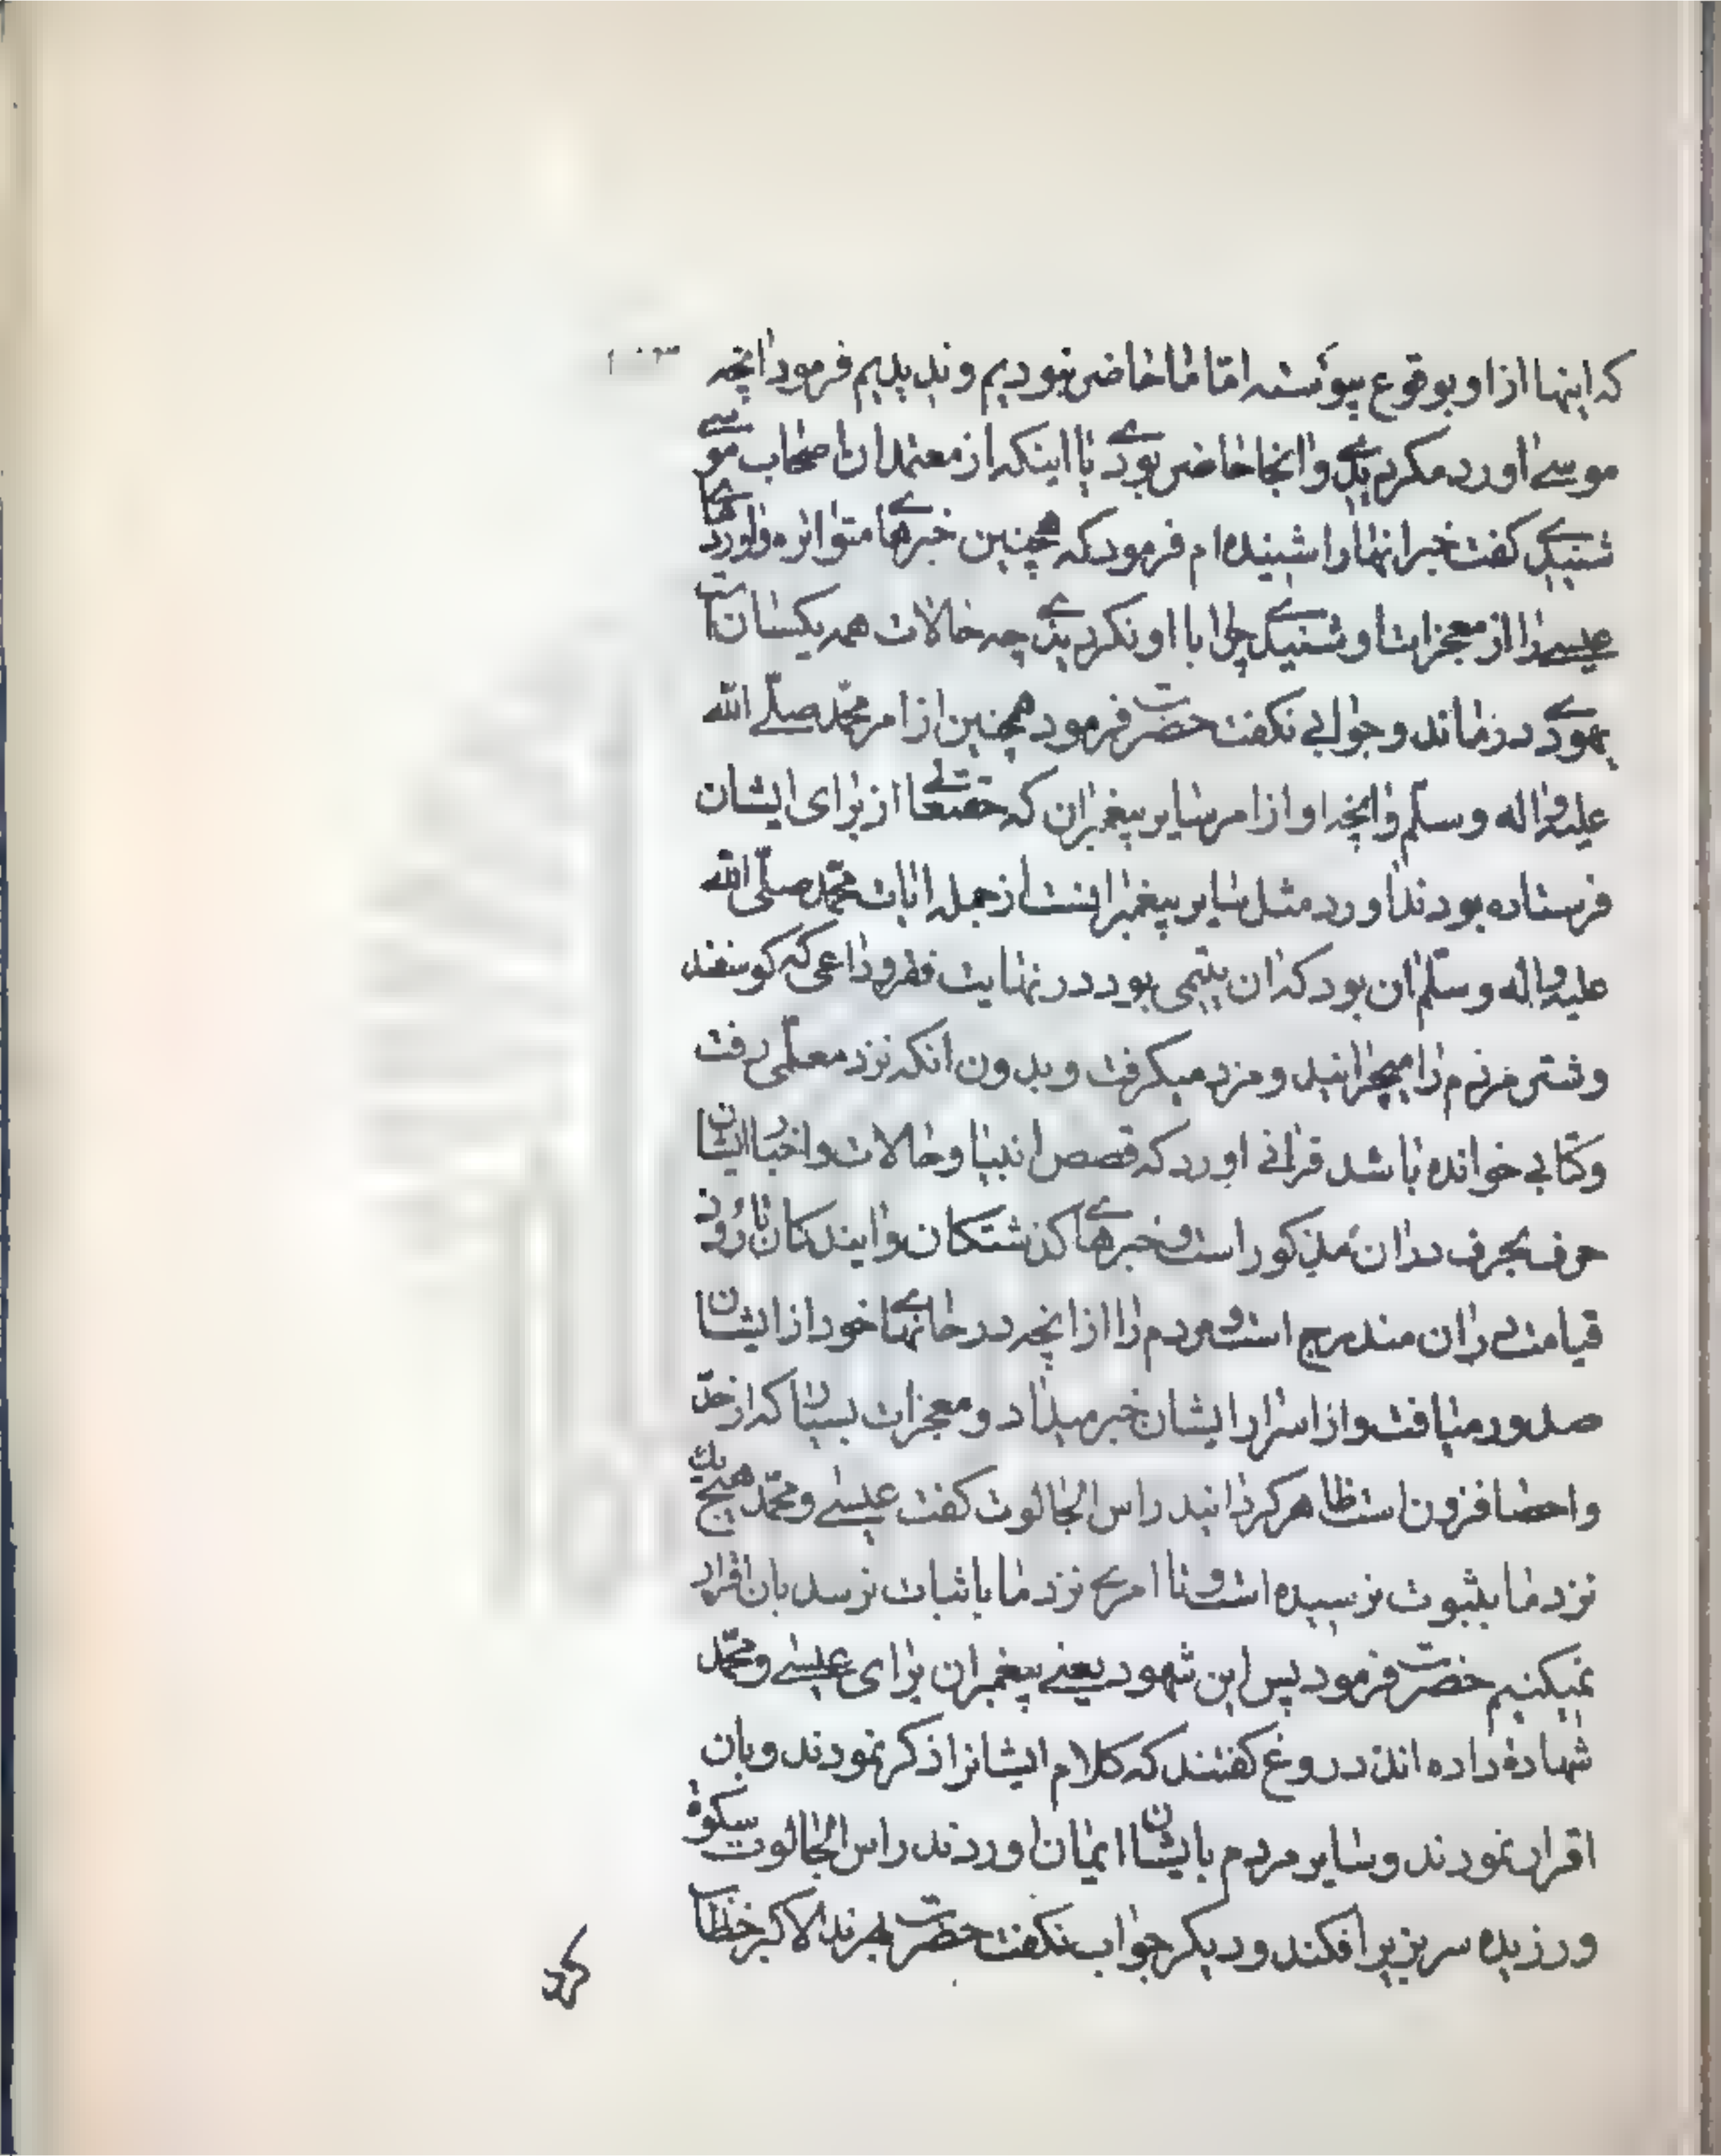 که اینها از او بوقوع پیوسته امّا ما حاضر نبودیم و ندیدیم فرمود انچه ۱۰۳
موسی اورد مکر دیدی و انجا حاضر بودی یا اینکه از معتمدان اصحاب موسی
شنیدی کفت خبر انها را شنیده ام فرمود که همچنین خبرهای متواتره
عیسی را از معجزات او شنیدی چرا با او نکردیدی چه حالات همه یکسان است
یهودی درماند و جوابی نکفت حضرت فرمود همچنین از امر محمّد صلّی الله
علیه و اله و سلّم و انچه او از امر سایر پیغمبران که حقتعالی از برای ایشان
فرستاده بودند اورد مثل سایر پیغمبرانست از جمله ایات محمّد صلّی الله
علیه و اله و سلّم ان بود که ان یتیمی بود در نهایت فقر و راعی که کوسفند
و شتر مردم را میچرانید و مزد میکرفت و بدون انکه نزد معلّمی رفت
و کتابی خوانده باشد قرانی اورد که قصص انبیا و حالات و اخبار ایشان
حرف بحرف در ان مذکور است و خبرهای کذشتکان و ایندکان تا روز
قیامت در ان مندرج است و مردم را از انچه در خانهای خود از ایشان
صدور مییافت و از اسرار ایشان خبر میداد و معجزات بسیار که از حدّ
و احصا افزون است ظاهر کردانید راس الجالوت کفت عیسی و محمّد هیچ یک
نزد ما بثبوت نرسیده است و تا امری نزد ما باثبات نرسد بان اقرار
نمیکنیم حضرت فرمود پس این شهود یعنی پیغمبران برای عیسی و محمّد
شهادة داده اند دروغ کفتند که کلام ایشانرا ذکر نمودند و بان
اقرار نمودند و سایر مردم بایشان ایمان اوردند راس الجالوت سکوة
ورزیده سر بزیر افکند و دیکر جواب نکفت حضرت بهربذ الاکبر خطاب
کرد